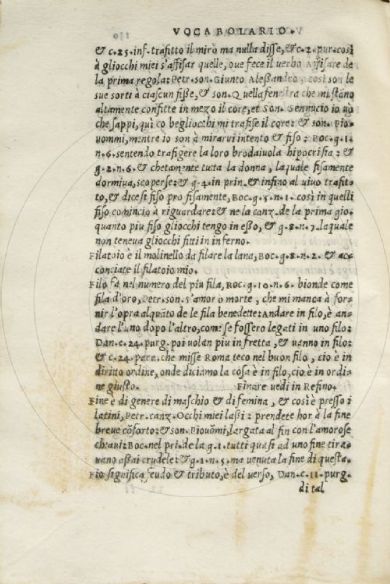 VOCABOLARIO.
& c. 25. inf. trafitto il mirò ma nulla disse, & c. 2. pur. così
à gliocchi miei s'affisar quelle, oue fece il verbo Affisare de
la prima regola: Petr. son. Giunto Alessandro, così son le
sue sorti à ciascun fisse, & son. Quella fenestra che mustano
altamente confitte in mezo il core, et son. Sennuccio io vò
che sappi, quì co begliocchi mi trafisse il core: & son. Pio-
uommi, mentre io son à mirarui intento & fiso: Boc. g. 1.
n. 6. sentendo trafigere la loro brodaiuola hipocrisia: &
g. 2. n. 6. & chetamente tutta la donna, la quale fisamente
dormiua, scoperse: & g. 4. in prin. & infino al uiuo trafit-
to, & dicesi fiso pro fisamente, Boc. g. 3. n. 1. così in quelli
fiso comincio à riguardare: & ne la canz. de la prima gio.
quanto piu fiso gliocchi tengo in esso, & g. 8. n. 7. laquale
non teneua gliocchi fitti in inferno.
Filatoio è il molinello da filare la lana, Boc. g. 8. n. 2. & ac-
conciate il filatoio mio.
Filo fa nel numero del piu fila, Boc. g. 10. n. 6. bionde come
fila d'oro, Petr. son. s'amor o morte, che mi manca à for-
nir l'opra alquāto de le fila benedette: Andare in filo, è an-
dare l'uno dopo l'altro, come se fossero legati in uno filo:
Dan. c. 24. purg. poi uolan piu in fretta, & uanno in filo:
& c. 24. para. che misse Roma teco nel buon filo, cio è in
diritto ordine, onde diciamo la cosa è in filo, cio è in ordi-
ne giusto. Finare uedi in Refino.
Fine è di genere di maschio & di femina, & così è presso i
latini, Petr. canz. Occhi miei lassi: prendete hor à la fine
breue cōforto: & son. Piouōmi, largata al fin con l'amorose
chiaui: Boc. nel pri. de la g. 1. tutti quasi ad uno fine tira-
uano assai crudele: & g. 2. n. 5. ma uenuta la fine di questa.
Fio significa feudo & tributo, è del verso, Dan. c. 11. purg.
di tal